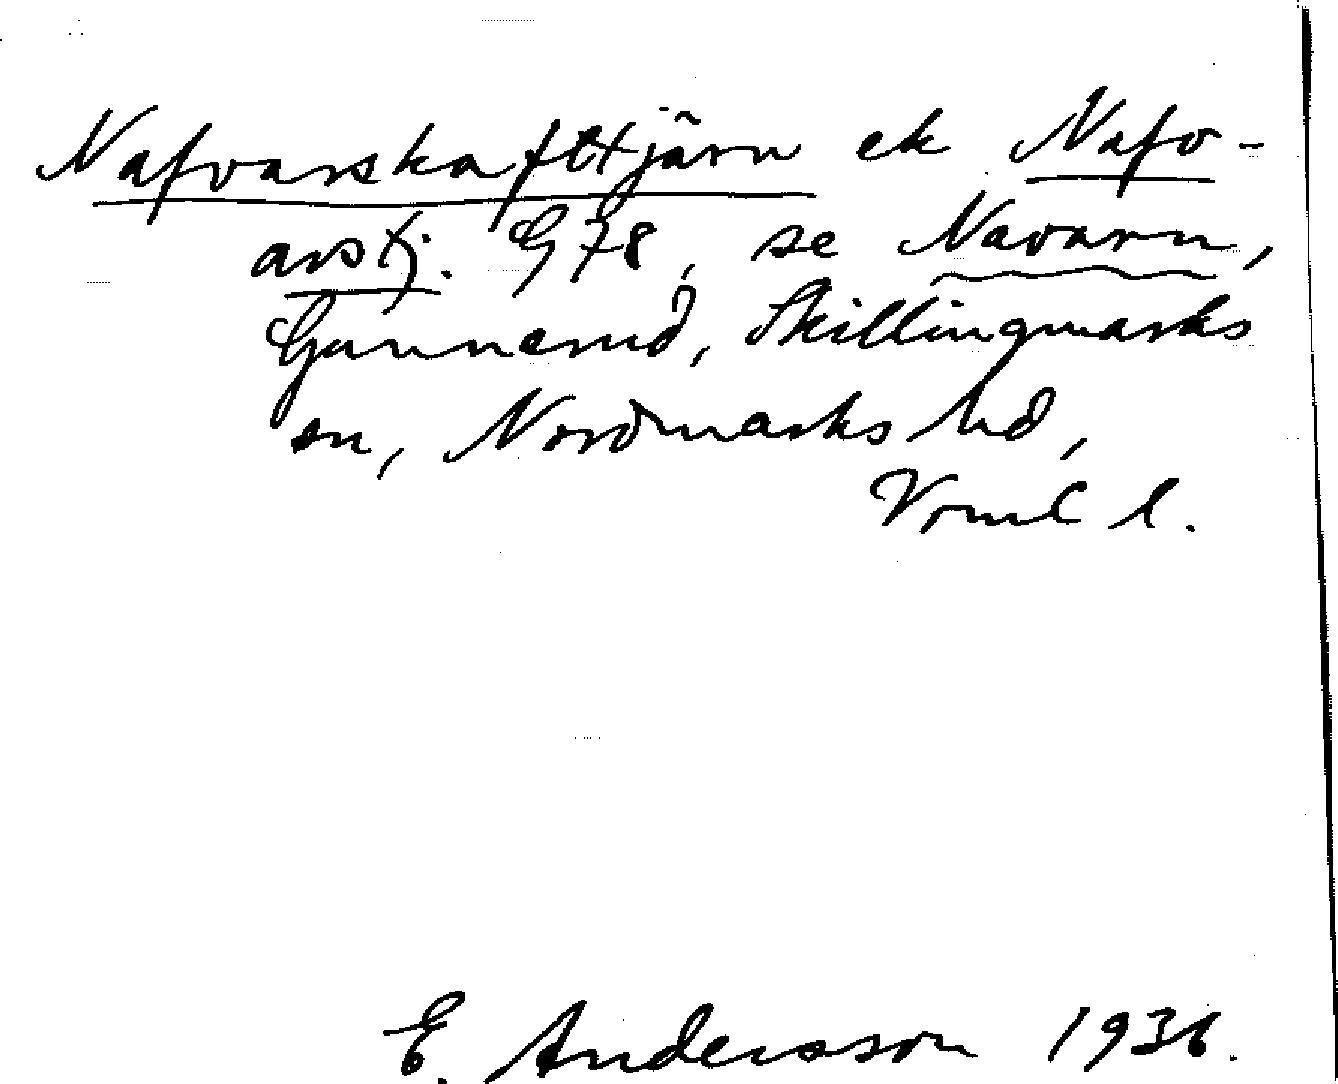 Nafvarskafttjärn ek Nafv-
arstj. G 78, se Navarn,
Gunnerud, Skillingmarks
sn, Nordmarks hd,
Vrml l.
E. Andersson 1936.